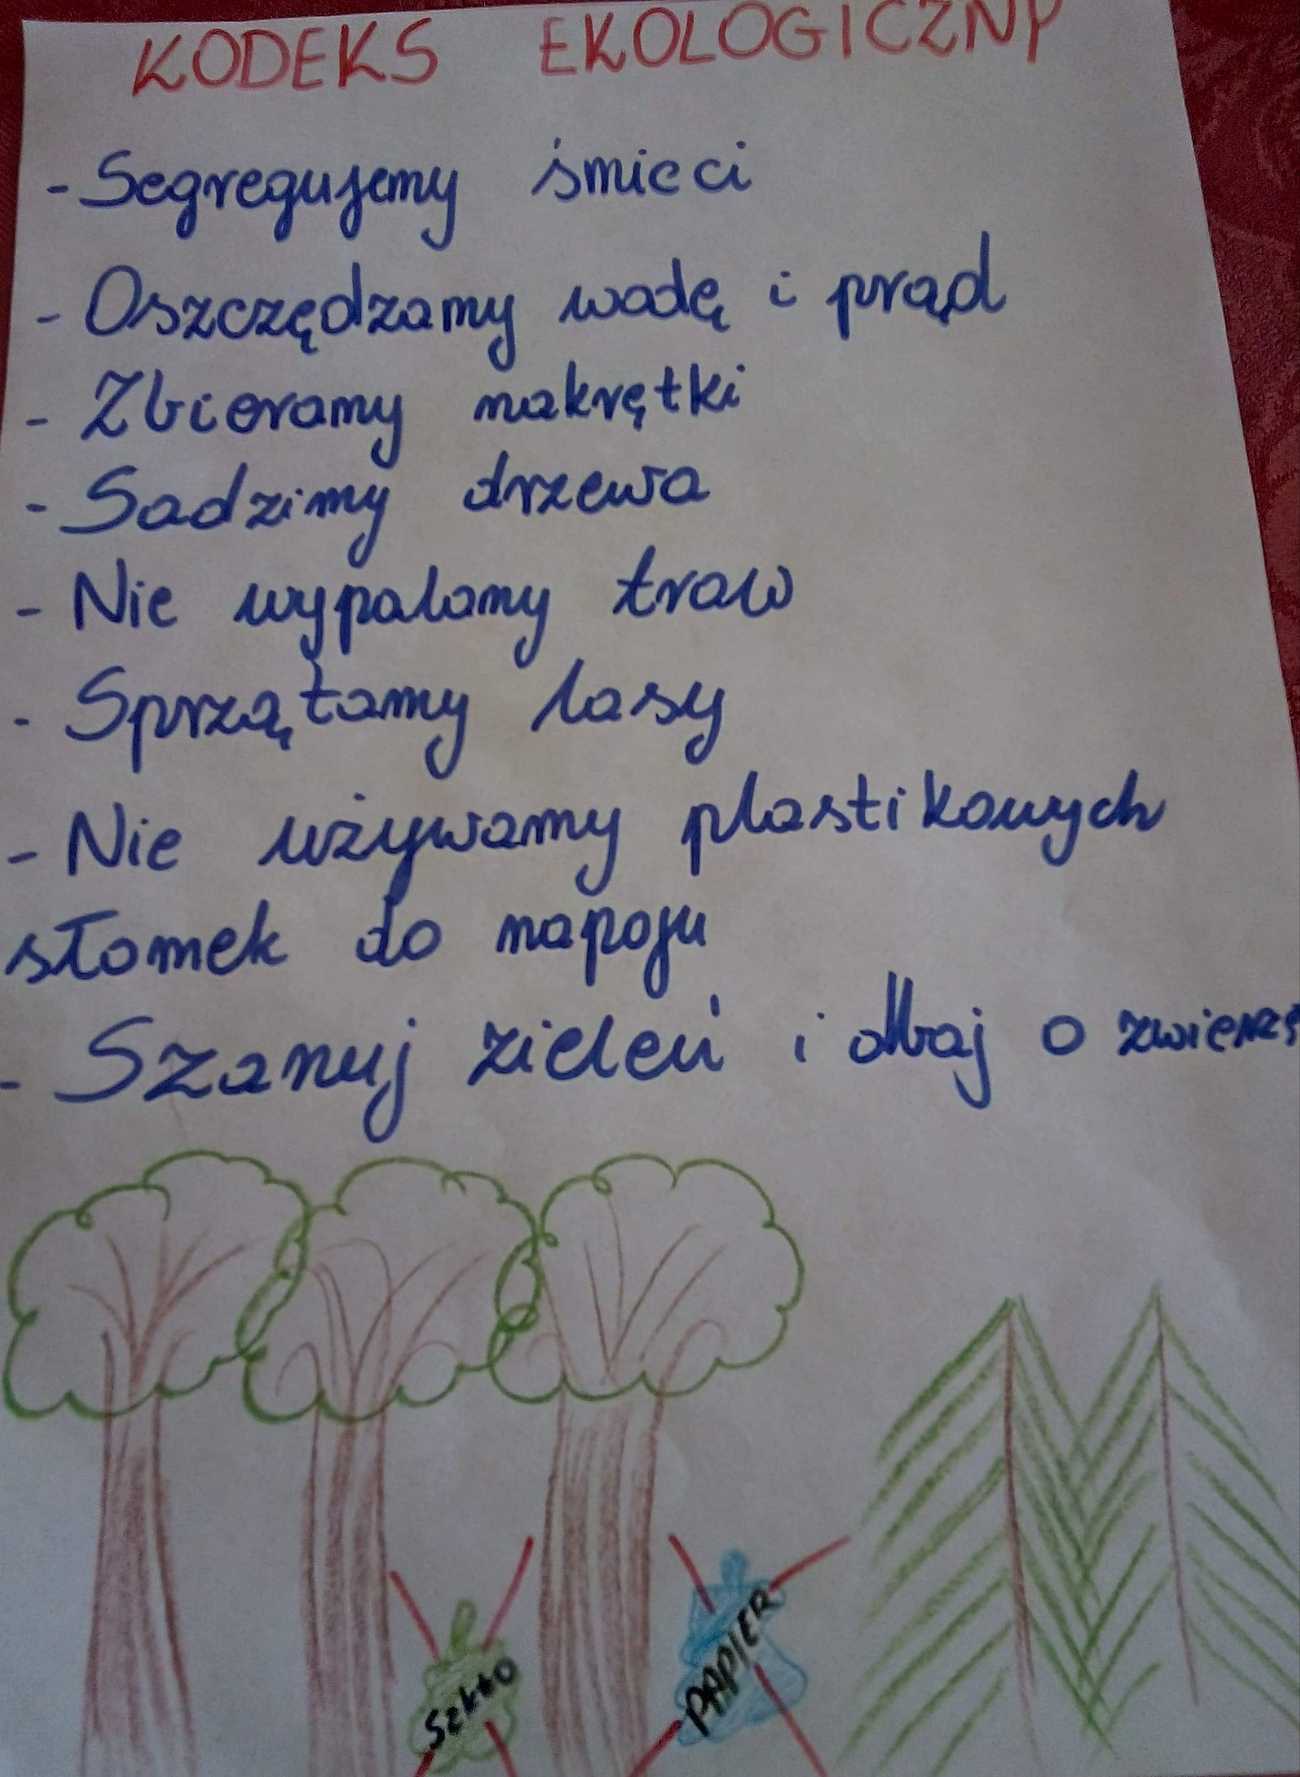 KODEKS EKOLOGICZNY
- Segregujemy śmieci
- Oszczędzamy wodę i prąd
- Zbieramy nakrętki
- Sadzimy drzewa
- Nie wypalamy traw
- Sprzątamy lasy
- Nie używamy plastikowych
słomek do napoju
- Szanuj zieleń i dbaj o
Szkło
PAPIER